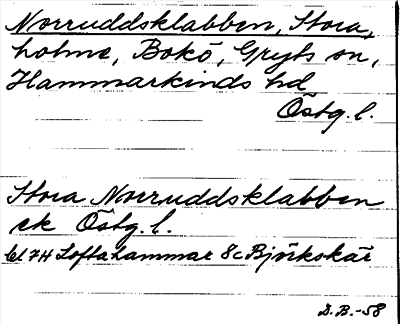 Norruddsklabben, Stora,
holme, Bokö, Gryts sn,
Hammarkinds hd
Östg. l.
Stora Norruddsklabben
ek Östg. l.
bl 7H Loftahammar 8c Björkskär
D.B.-58